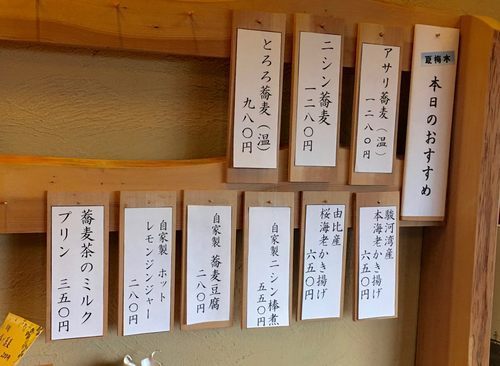 夏梅木
本日のおすすめ
アサリ蕎麦(温)
一二八〇円
ニシン蕎麦
一二八〇円
とろろ蕎麦(温)
九八〇円
駿河湾産
本海老かき揚げ
六五〇円
由比産
桜海老かき揚げ
六五〇円
自家製ニシン棒煮
五五〇円
自家製 蕎麦豆腐
二八〇円
自家製 ホット
レモンジンジャー
二八〇円
蕎麦茶のミルク
プリン 三五〇円